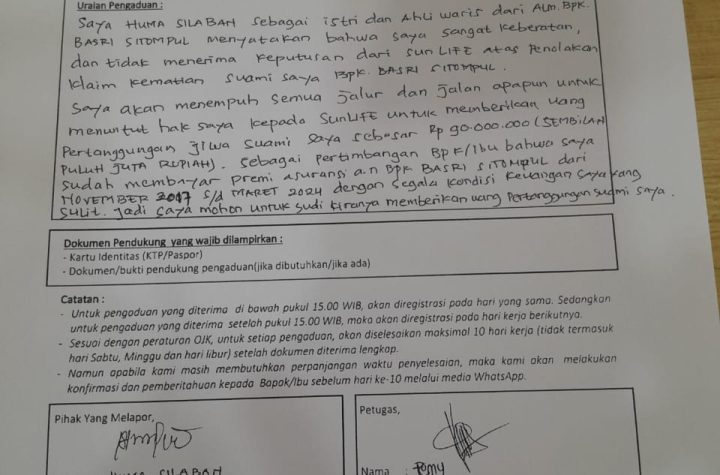 Uraian Pengaduan :
SAYA HUMA SILABAN sebagai istri dan Ahli waris dari Alm. BPK.
BASRI SITOMPUL menyatakan bahwa saya sangat keberatan,
dan tidak menerima keputusan dari SUN LIFE atas Penolakan
klaim kematian suami saya BPK. BASRI SITOMPUL.
Saya akan menempuh semua jalur dan jalan apapun untuk
menuntut hak saya kepada SunLIFE untuk memberikan uang
Pertanggungan jiwa suami saya sebesar Rp 90.000.000 (SEMBILAN
PULUH JUTA RUPIAH). sebagai pertimbangan BPK/Ibu bahwa saya
sudah membayar premi asuransi a.n BPK BASRI SITOMPUL dari
NOVEMBER 2017 s/d MARET 2024 dengan segala kondisi keuangan saya yang
sulit. jadi saya mohon untuk sudi kiranya memberikan uang Pertanggungan suami saya.
Dokumen Pendukung yang wajib dilampirkan :
- Kartu Identitas (KTP/Paspor)
- Dokumen/bukti pendukung pengaduan(jika dibutuhkan/jika ada)
Catatan :
- Untuk pengaduan yang diterima di bawah pukul 15.00 WIB, akan diregistrasi pada hari yang sama. Sedangkan
untuk pengaduan yang diterima setelah pukul 15.00 WIB, maka akan diregistrasi pada hari kerja berikutnya.
- Sesuai dengan peraturan OJK, untuk setiap pengaduan, akan diselesaikan maksimal 10 hari kerja (tidak termasuk
hari Sabtu, Minggu dan hari libur) setelah dokumen diterima lengkap.
- Namun apabila kami masih membutuhkan perpanjangan waktu penyelesaian, maka kami akan melakukan
konfirmasi dan pemberitahuan kepada Bapak/Ibu sebelum hari ke-10 melalui media WhatsApp.
Pihak Yang Melapor,
HUMA SILABAN
Petugas,
Nama : Pomy